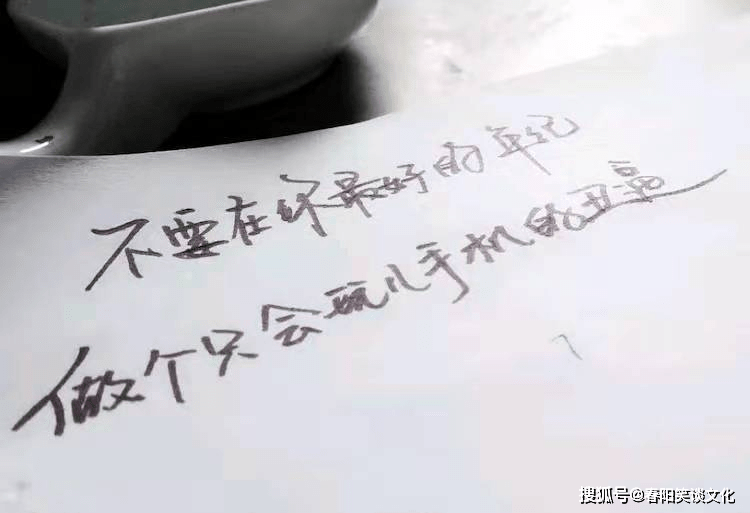 不要在你最好的年纪
做个只会玩儿手机的丑逼
搜狐号@春阳笑谈文化